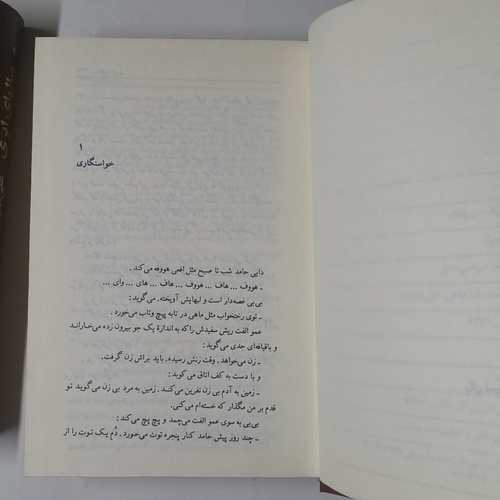 ۱
خواستگاری
دایی حامد شب تا صبح مثل افعی هووفه می‌کند.
ـ هووف ... هاف ... هووف ... هاف ... های ... وای ...
بی‌بی غصه‌دار است و لبهایش آویخته. می‌گوید:
ـ توی رختخواب مثل ماهی در تابه پیچ وتاب می‌خورد.
عمو الفت ریش سفیدش راکه به اندازهٔ یک جو بیرون زده می‌خاراند
و باقیافه‌ای جدی می‌گوید:
ـ زن می‌خواهد. وقت زنش رسیده. باید براش زن گرفت.
و با دست به کف اتاق می‌کوبد:
ـ زمین به آدم بی زن نفرین می‌کند. زمین به مرد بی زن می‌گوید تو
قدم بر من مگذار که خسته‌ام می‌کنی.
بی‌بی به سوی عمو الفت می‌چمد و پچ پچ می‌کند:
ـ چند روز پیش حامد کنار پنجره توت می‌خورد. دُم یک توت را از